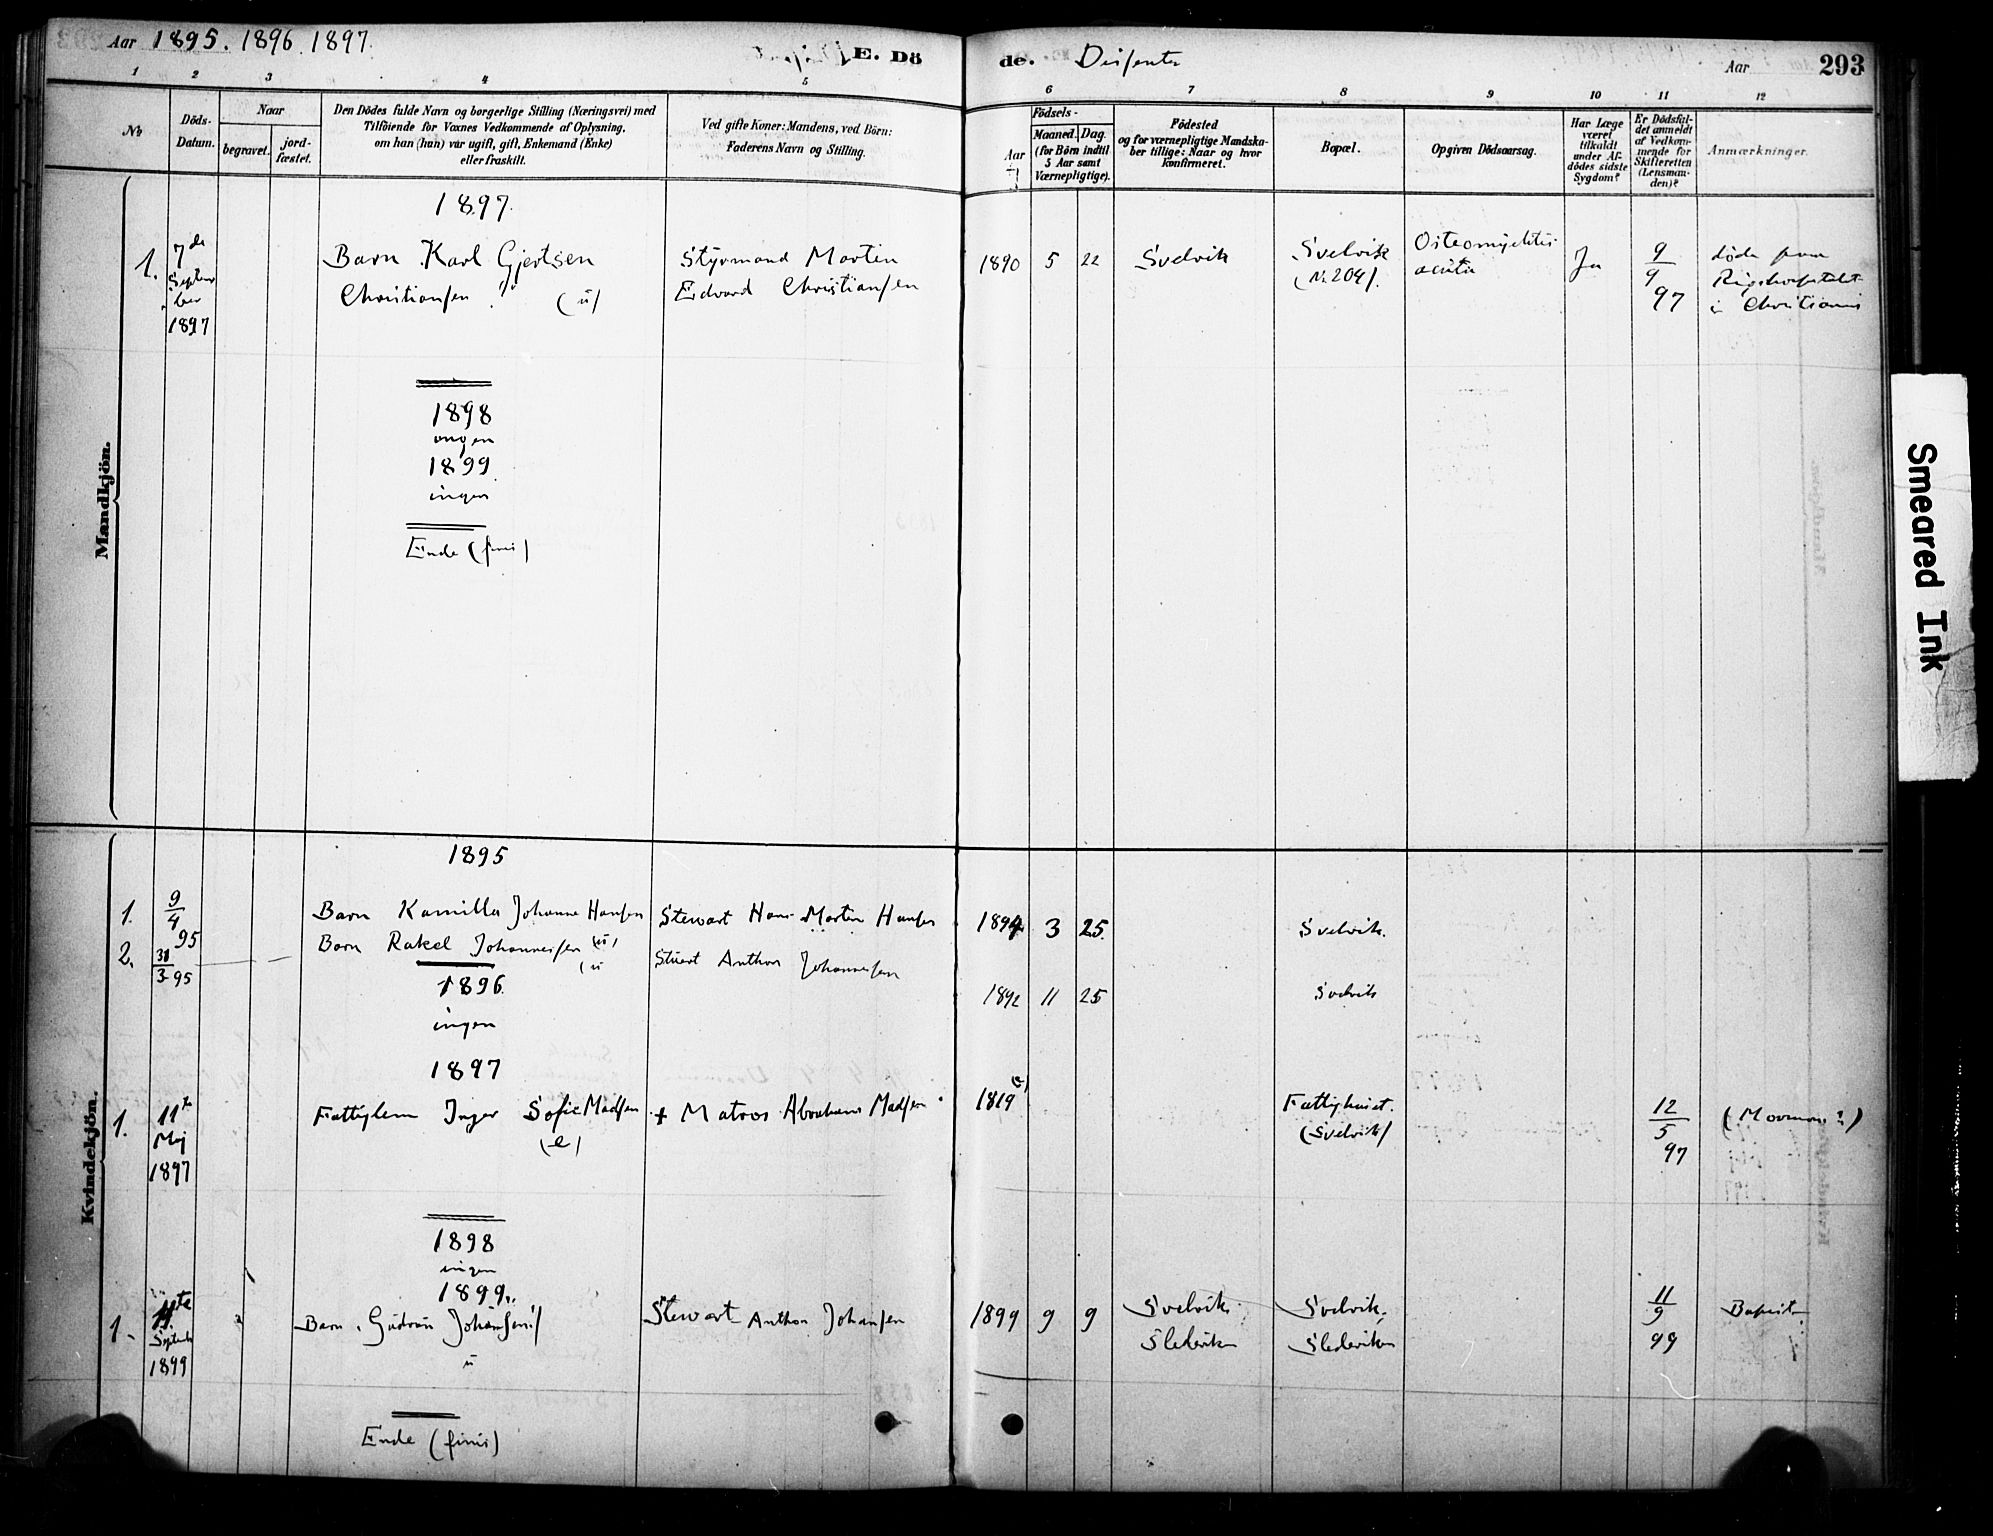 Aar 1895. 1896 1897.
E. Dö
de. Disfenter
Aar
293
1 2 3 4 5 6 7 8 9 10 11 12
No
Döds-
Datum.
Naar
begravet.
jord-
fæstet.
Den Dödes fulde Navn og borgerlige Stilling (Næringsvei) med
Tilföiende for Voxnes Vedkommende af Oplysning,
om han (hun) var ugift, gift, Enkemand (Enke)
eller fraskilt.
Ved gifte Koner: Mandens, ved Börn:
Faderens Navn og Stilling.
Födsels-
Aar
Maaned.
Dag.
(for Börn indtil
5 Aar samt
Værnepligtige).
Födested
og for værnepligtige Mandska-
ber tillige: Naar og hvor
konfirmeret.
Bopæl.
Opgiven Dödsaarsag.
Har Læge
været
tilkaldt
under Af-
dödes sidste
Sygdom?
Er Dödsfal-
det anmeldt
af Vedkom-
mende for
Skifteretten
(Lensman-
den)?
Anmærkninger.
Mandkjön.
1897.
1.
7de
Septem
ber
1897
Barn Karl Gjertsen
Christiansen (u)
Styrmand Martin
Edvard Christiansen
1890 5 22
Svelvik
Svelvik
(N. 204).
Osteomyelitis
acuta
Ja
9
9
97
døde paa
Rigshospitalet
i Christiania
1898
ingen
1899
ingen
Ende (finis)
Kvindekjön.
1895
1.
9
4
95
Barn Kamilla Johanne Hansen
(u)
Stewart Hans Martin Hansen
1894 3 25.
Svelvik.
2.
31
3 95
Barn Rakel Johannesen
(u
Stuert Anthon Johannesen
1892 11 25
Svelvik
1896
ingen
1897
1.
11te
Maj
1897
Fattiglem Inger Sofie Madsen
(e)
+ Matros Abraham Madsen
1819
Fattighuset.
(Svelvik)
12
5
97
(Mormon?)
1898
ingen
1899.
1.
11te
Septemb
1899
Barn Gudrun Johansen
u
Stewart Anthon Johansen
1899 9 9
Svelvik
Sledeviken
Svelvik,
Sledeviken
11
9
99
Baptist
Ende (finis)
Smeared Ink